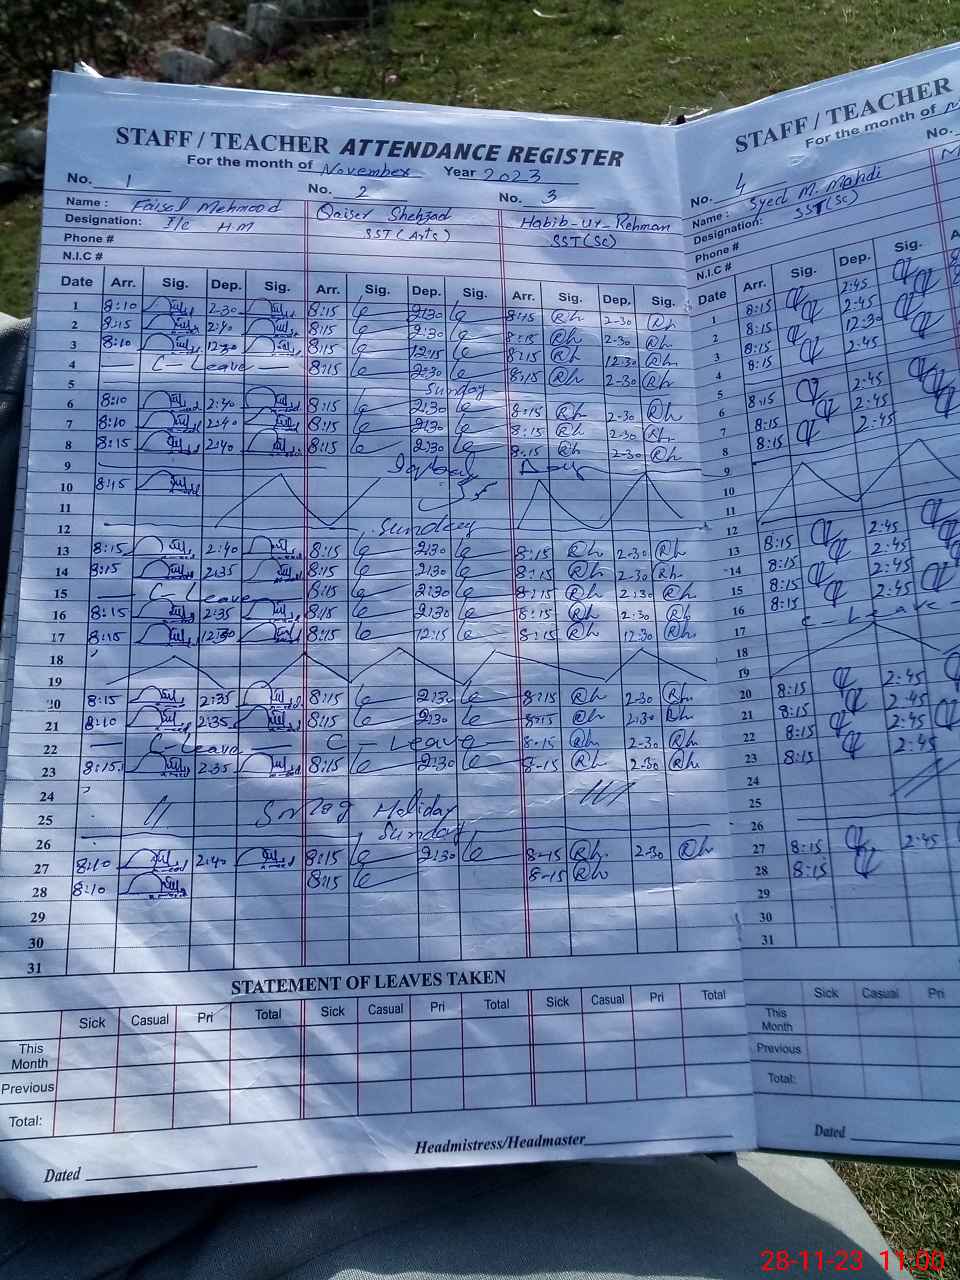 STAFF / TEACHER ATTENDANCE REGISTER
For the month of November Year 2023
No. 1 No. 2 No. 3
Name : Faisal Mehmood Qaiser Shehzad Habib-ur-Rehman
Designation: I/c HM SST (Arts) SST (Sc)
Phone #
N.I.C #
Date Arr. Sig. Dep. Sig. Arr. Sig. Dep. Sig. Arr. Sig. Dep. Sig.
1 8:10 2-30 8:15 2:30 8:15 2-30
2 8:15 2:40 8:15 2:30 8:15 2-30
3 8:10 12:30 8:15 12:15 8:15 12-30
4 — C-Leave — 8:15 2:30 8:15 2-30
5 Sunday
6 8:10 2:40 8:15 2:30 8:15 2-30
7 8:10 2:40 8:15 2:30 8:15 2-30
8 8:15 2:40 8:15 2:30 8:15 2-30
9 Iqbal Day
10 8:15
11
12 Sunday
13 8:15 2:40 8:15 2:30 8:15 2-30
14 8:15 2:35 8:15 2:30 8:15 2-30
15 — C-Leave 8:15 2:30 8:15 2:30
16 8:15 2:35 8:15 2:30 8:15 2-30
17 8:15 12:30 8:15 12:15 8:15 12:30
18
19
20 8:15 2:35 8:15 2:30 8:15 2-30
21 8:10 2:35 8:15 2:30 8:15 2:30
22 — C-Leave — C-Leave 8-15 2-30
23 8:15 2:35 8:15 2:30 8-15 2-30
24
25 Smog Holiday
26 Sunday
27 8:10 2:40 8:15 2:30 8-15 2-30
28 8:10 8:15 8-15
29
30
31
STATEMENT OF LEAVES TAKEN
Sick Casual Pri Total Sick Casual Pri Total Sick Casual Pri Total
This Month
Previous
Total:
Headmistress/Headmaster
Dated
STAFF / TEACHER
For the month of
No. 4 No.
Name : Syed M. Mahdi
Designation: SST (Sc)
Phone #
N.I.C #
Date Arr. Sig. Dep. Sig.
1 8:15 2:45
2 8:15 2:45
3 8:15 12:30
4 8:15 2:45
5
6 8:15 2:45
7 8:15 2:45
8 8:15 2:45
9
10
11
12
13 8:15 2:45
14 8:15 2:45
15 8:15 2:45
16 8:15 2:45
17 C-Leave
18
19
20 8:15 2:45
21 8:15 2:45
22 8:15 2:45
23 8:15 2:45
24
25
26
27 8:15 2:45
28 8:15
29
30
31
Sick Casual Pri
This Month
Previous
Total:
Dated
28-11-23 11:00